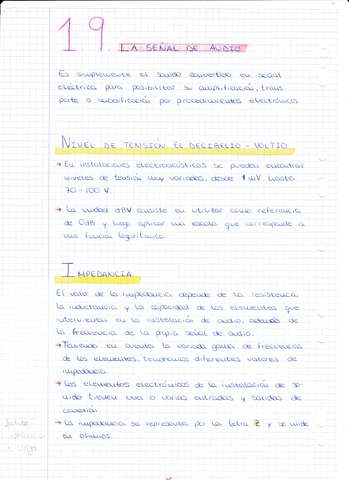 1.9. LA SEÑAL DE AUDIO
Es simplemente el sonido convertido en señal
eléctrica para posibilitar su amplificación, trans-
porte o modificación por procedimientos electrónicos.
NIVEL DE TENSIÓN. EL DECIBELIO - VOLTIO
→ En instalaciones electroacústicas se pueden encontrar
niveles de tensión muy variados, desde 1 mV hasta
70 - 100 V.
→ La unidad dBV consiste en utilizar como referencia
de 0dB y luego aplicar una escala que corresponde a
una función logarítmica.
IMPEDANCIA
El valor de la impedancia depende de la resistencia,
la inductancia y la capacidad de los elementos que
intervienen en la instalación de audio, además de
la frecuencia de la propia señal de audio.
→ Teniendo en cuenta la variada gama de frecuencia
de los elementos, tenemos diferentes valores de
impedancia.
→ Los elementos electrónicos de la instalación de so-
nido tienen una o varias entradas y salidas de
conexión.
→ La impedancia se representa por la letra Z y se mide
en ohmios.